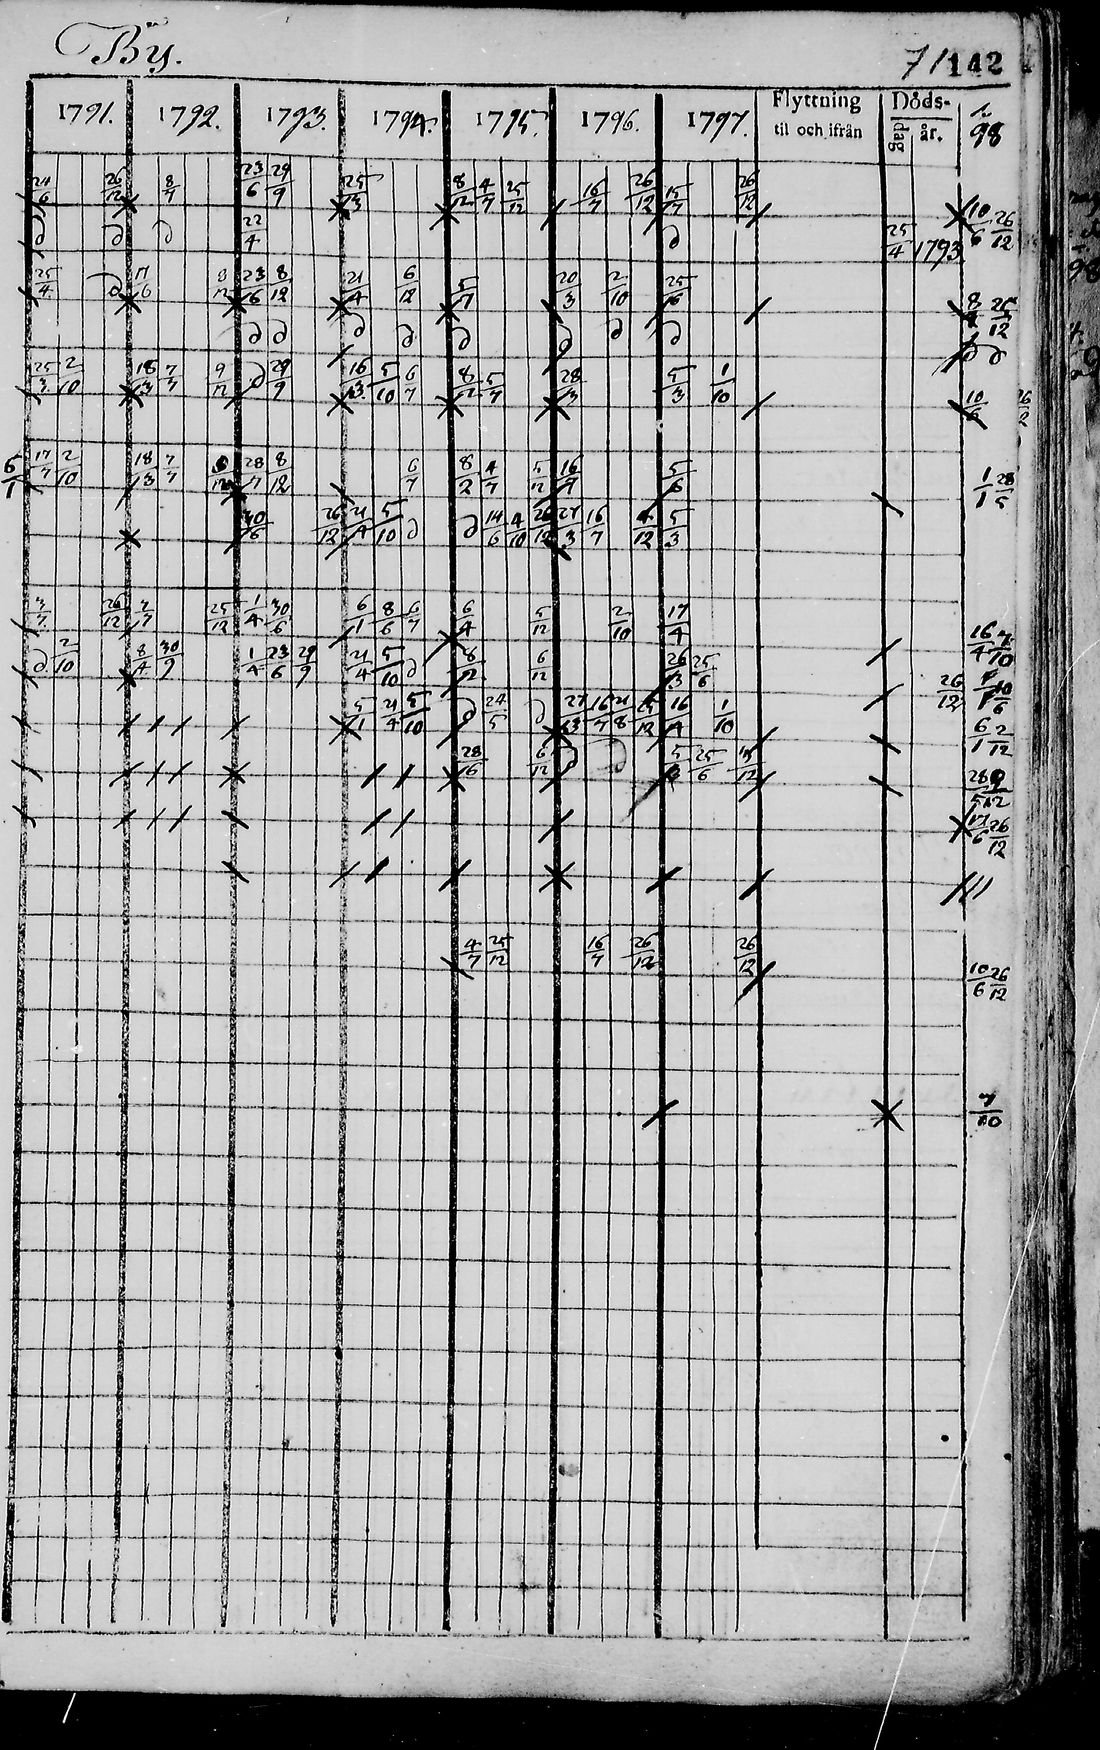 By.
71 142
1791. 1792. 1793. 1794. 1795. 1796. 1797. Flyttning til och ifrån Döds- dag år. 98
24/6 26/12 8/7 23/6 29/9 25/3 8/12 4/7 25/12 16/7 26/12 15/7 26/12 10/6 26/12
d d d 22/4 d 25/4 1793
25/4 d 17/6 8/12 23/6 8/12 21/4 6/12 5/7 20/3 2/10 25/6 8/4 25/12
d d d d d d d d d d
25/3 2/10 18/3 7/7 9/12 d 29/9 16/3 5/10 6/7 8/12 5/7 28/3 5/3 1/10 10/6
6/1 17/7 2/10 18/3 7/7 28/7 8/12 6/7 8/2 4/7 5/12 16/7 5/6 1/1 28/5
30/6 26/12 21/4 5/10 d d 14/6 4/10 26/12 27/3 16/7 4/12 5/3
7/7 26/12 7/7 25/12 1/4 30/6 6/1 8/6 6/7 6/4 5/12 2/10 17/4 16/4 7/10
d 2/10 8/4 30/9 1/4 23/6 29/9 21/4 5/10 d 8/12 6/12 26/3 25/6 26/12
5/1 21/4 5/10 d 24/5 d 27/3 16/7 21/8 25/12 16/4 1/10 6/1 2/12
28/6 6/12 d d 5/3 25/6 28/5
17/6 26/12
4/7 25/12 16/7 26/12 26/12 10/6 26/12
7/10